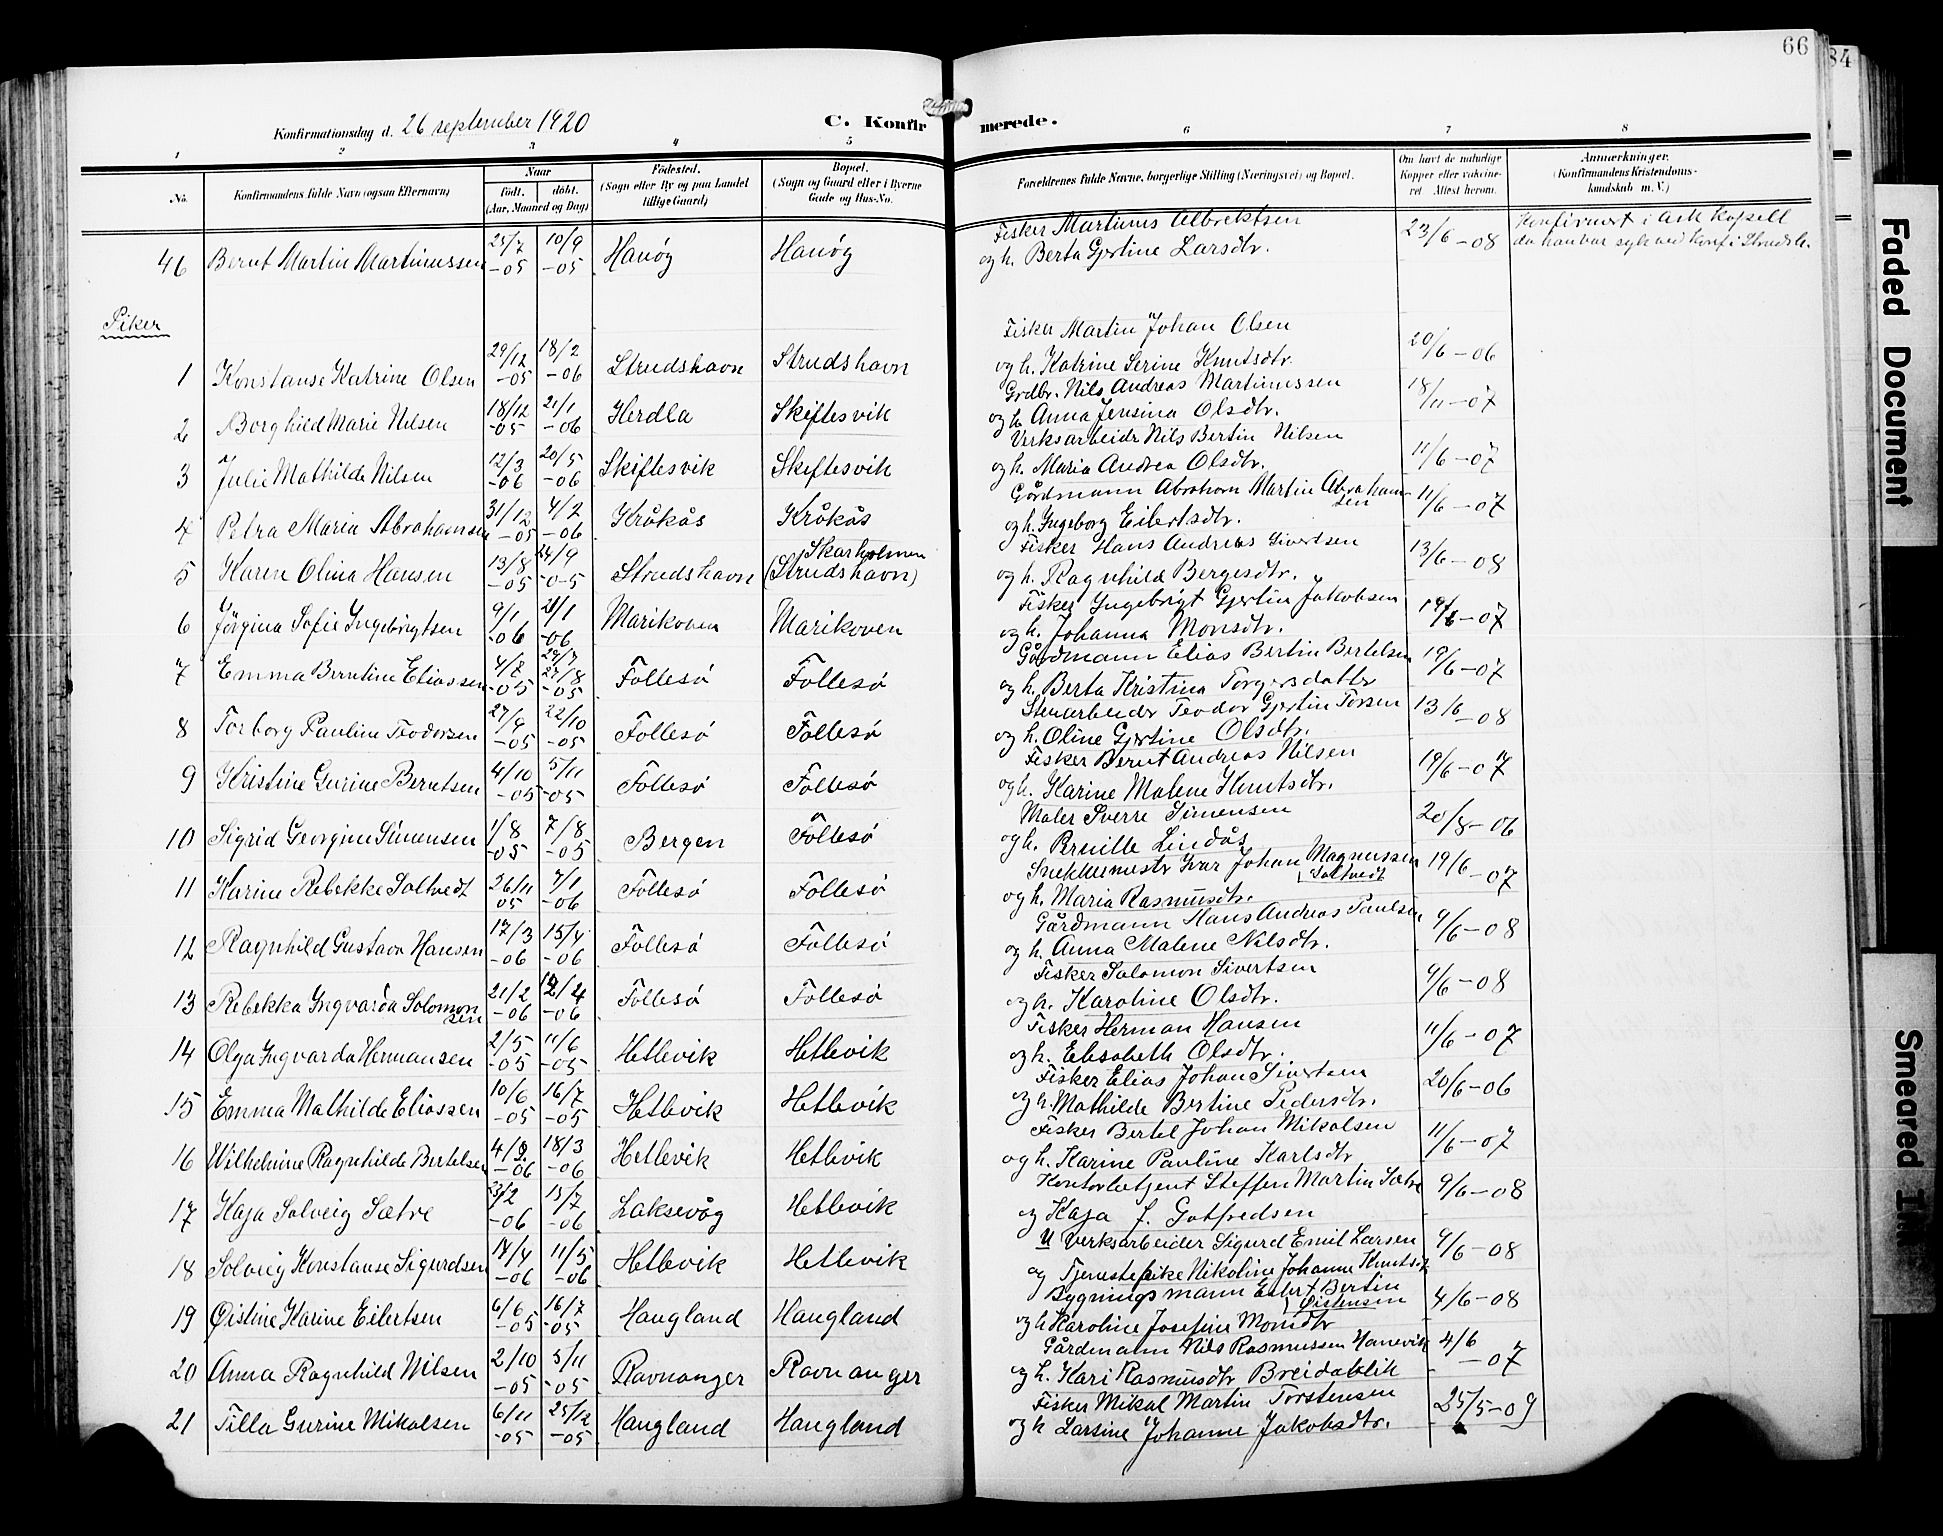 66
84
Konfirmationsdag d. 26 september 1920
C. Konfirmerede.
1 2 3 4 5 6 7 8
No.
Konfirmandens fulde Navn (ogsaa Efternavn)
Naar
født. døbt.
(Aar, Maaned og Dag)
Fødested.
(Sogn eller By og paa Landet
tillige Gaard)
Bopæl.
(Sogn og Gaard eller i Byerne
Gade og Hus-No.
Forældrenes fulde Navne, borgerlige Stilling (Næringsvei) og Bopæl.
Om havt de naturlige
Kopper eller vaccine-
ret Attest herom.
Anmærkninger.
(Konfirmandens Kristendoms-
kundskab m. V.)
46 Bernt Martin Martinussen 25/7 -05 10/9 -05 Hanøy Hanøy Fisker Martinus Albrektsen
og h. Berta Gjertine Larsdtr. 23/6-08 Konfirmert i Ask Kapell
da han var syk ved Konf i Strudsh.
Piker
1 Konstanse Katrine Olsen 29/12 -05 18/2 -06 Strudshavn Strudshavn Fisker Martin Johan Olsen
og h. Katrine Serine Knutsdtr. 20/6-06
2 Borghild Marie Nilsen 18/12 -05 21/1 -06 Herdla Skiftesvik Grdbr. Nils Andreas Martinussen
og h. Anna Jensina Olsdtr. 18/11-07
3 Julie Mathilde Nilsen 12/3 -06 20/5 -06 Skiftesvik Skiftesvik Verksarbeidr Nils Bertin Nilsen
og h. Maria Andrea Olsdtr. 11/6-07
4 Petra Maria Abrahamsen 31/12 -05 4/2 -06 Kråkås Kråkås Gårdmann Abraham Martin Abraham-
sen
og h. Ingeborg Eilertsdtr. 11/6-07
5 Karen Olina Hansen 13/8 -05 24/9 -0-5 Strudshavn Skarholmen
(Strudshavn) Fisker Hans Andreas Sivertsen
og h. Ragnhild Bergesdtr. 13/6-08
6 Jørgina Sofie Ingebrigtsen 9/1 -06 21/1 -06 Marikoven Marikoven Fisker Ingebrigt Gjertin Jakobsen
og h. Johanna Monsdtr. 19/6-07
7 Emma Berntine Eliassen 4/7 -05 29/7 27/8 -05 Follesø Follesø Gårdmann Elias Bertin Bertelsen
og h. Berta Kristina Torgersdatter 19/6-07
8 Torborg Pauline Teodorsen 27/9 -05 22/10 -05 Follesø Follesø Stenarbeider Teodor Gjertin Torsen
og h. Oline Gjertine Olsdtr. 13/6-08
9 Kristine Gurine Berntsen 4/10 -05 5/11 -05 Follesø Follesø Fisker Bernt Andreas Nilsen
og h. Karine Malene Knutsdtr. 19/6-07
10 Sigrid Georgine Simensen 1/8 -05 7/8 -05 Bergen Follesø Maler Sverre Simensen
og h. Pernille Lindås 20/8-06
11 Karine Rebekke Soltvedt 26/11 05 7/1 -06 Follesø Follesø Snekkermestr Ivar Johan Magnussen
Soltvedt
og h. Maria Rasmusdtr. 19/6-07
12 Ragnhild Gustava Hansen 17/3 -06 15/4 -06 Follesø Follesø Gårdmann Hans Andreas Paulsen
og h. Anna Malene Nilsdtr. 9/6-08
13 Rebekka Ingvarda Solomon
sen 21/2 -06 12/4 -06 Follesø Follesø Fisker Salomon Sivertsen
og h. Karoline Olsdtr. 9/6-08
14 Olga Ingvarda Hermansen 2/5 -05 11/6 -05 Hetlevik Hetlevik Fisker Herman Hansen
og h. Elisabeth Olsdtr. 11/6-07
15 Emma Mathilde Eliassen 10/6 -05 16/7 -05 Hetlevik Hetlevik Fisker Elias Johan Sivertsen
og h. Mathilde Bertine Pedersdtr. 20/6-06
16 Wilhelmine Ragnhilde Bertelsen 4/2 -06 18/3 -06 Hetlevik Hetlevik Fisker Bertel Johan Mikalsen
og h. Karine Pauline Karlsdtr 11/6-07
17 Kaja Solveig Sætre 23/2 -06 15/7 -06 Laksevåg Hetlevik Kontorbetjent Steffen Martin Sætre
og Kaja J. Gotfredsen 9/6-08
18 Solveig Konstanse Sigurdsen 17/4 -06 11/5 -06 Hetlevik Hetlevik U Verksarbeider Sigurd Emil Larsen
og Tjenestepike Nikoline Johanne Knutsdtr 9/6-08
19 Øistine Karine Eilertsen 6/6 -05 16/7 -05 Haugland Haugland Bygningsmann Eilert Bertin
Øistensen
og h Karoline Josefine Monsdtr 4/6-08
20 Anna Ragnhild Nilsen 2/10 -05 5/11 -05 Ravnanger Ravnanger Gårdmann Nils Rasmussen Hanevik
og h. Kari Rasmusdtr Breidablik 4/6-07
21 Tilla Gurine Mikalsen 6/11 -05 25/12 -05 Haugland Haugland Fisker Mikal Martin Torstensen
og h Larsine Johanne Jakobsdtr. 25/5-09
Faded Document
Smeared Ink